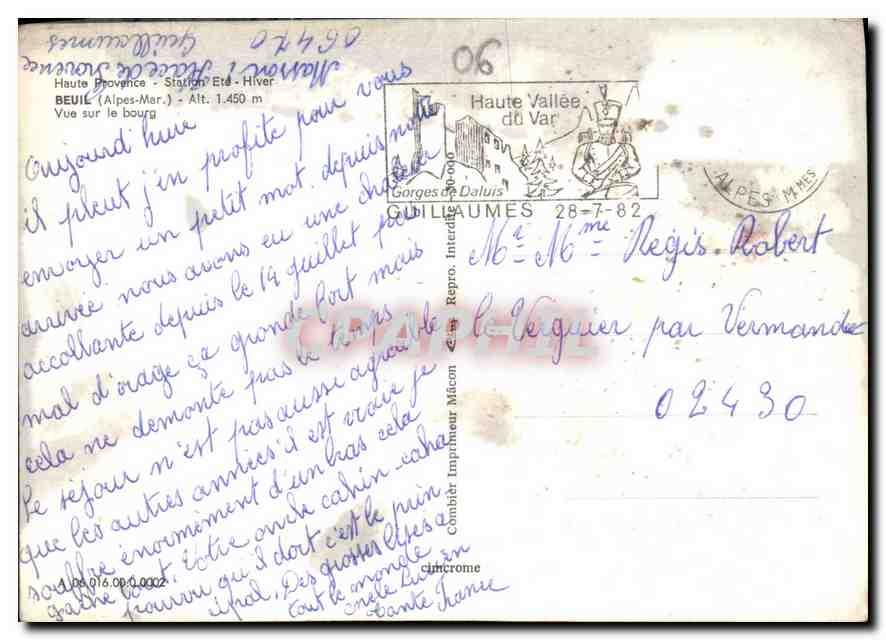 Masson 1 Place de Provence
06470
Guillaumes
Haute Provence - Station Eté - Hiver
BEUIL (Alpes-Mar.) - Alt. 1.450 m
Vue sur le bourg
Oujourd'hui
il pleut j'en profite pour vous
envoyer un petit mot. depuis notre
arrivée nous avons eu une chaleur
accablante depuis le 14 juillet pas
mal d'orage ça gronde fort mais
cela ne demonte pas le temps
le sejour n'est pas aussi agreable
que les autres années il est vraie je
souffre énormément d'un bras cela
gache tout. Votre oncle cahin-caha
pourvu qu'il dort c'est le prin-
cipal. Des grosses bises a
tout le monde
oncle Lucien
tante France
90
Haute Vallée
du Var
Gorges de Daluis
GUILLAUMES 28-7-82
ALPES MMES
Mr Mme Regis Robert
le Verguier par Vermand
02430
Combier Imprimeur Mâcon Repro. Interdite
cimcrome
A 06.016.00.0.0002
CPAPHIL